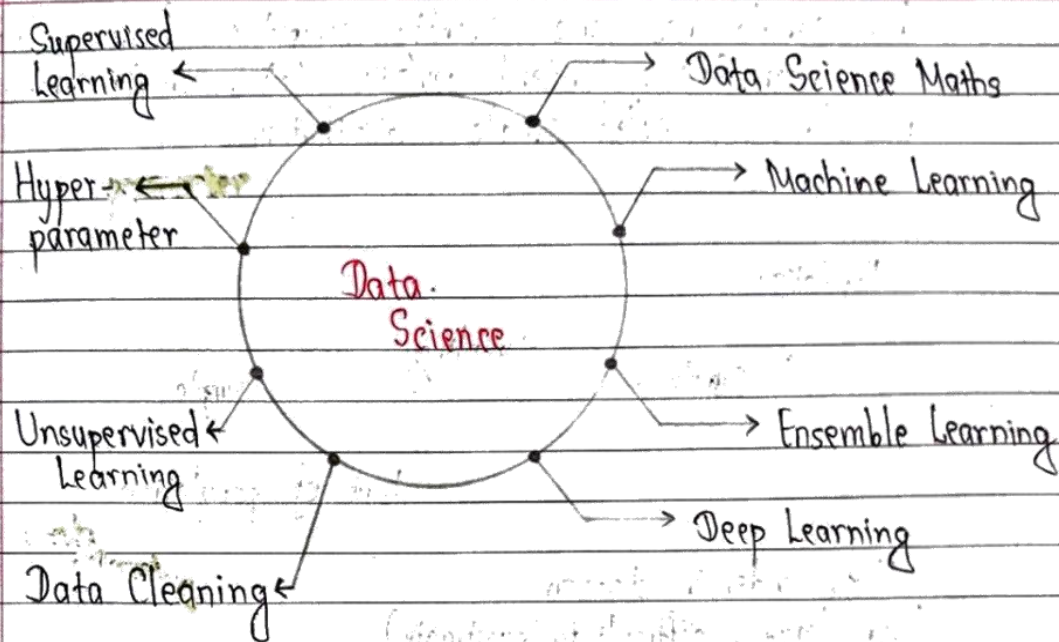 Supervised
Learning
Data Science Maths
Hyper-
parameter
Machine Learning
Data
Science
Unsupervised
Learning
Ensemble Learning
Deep Learning
Data Cleaning